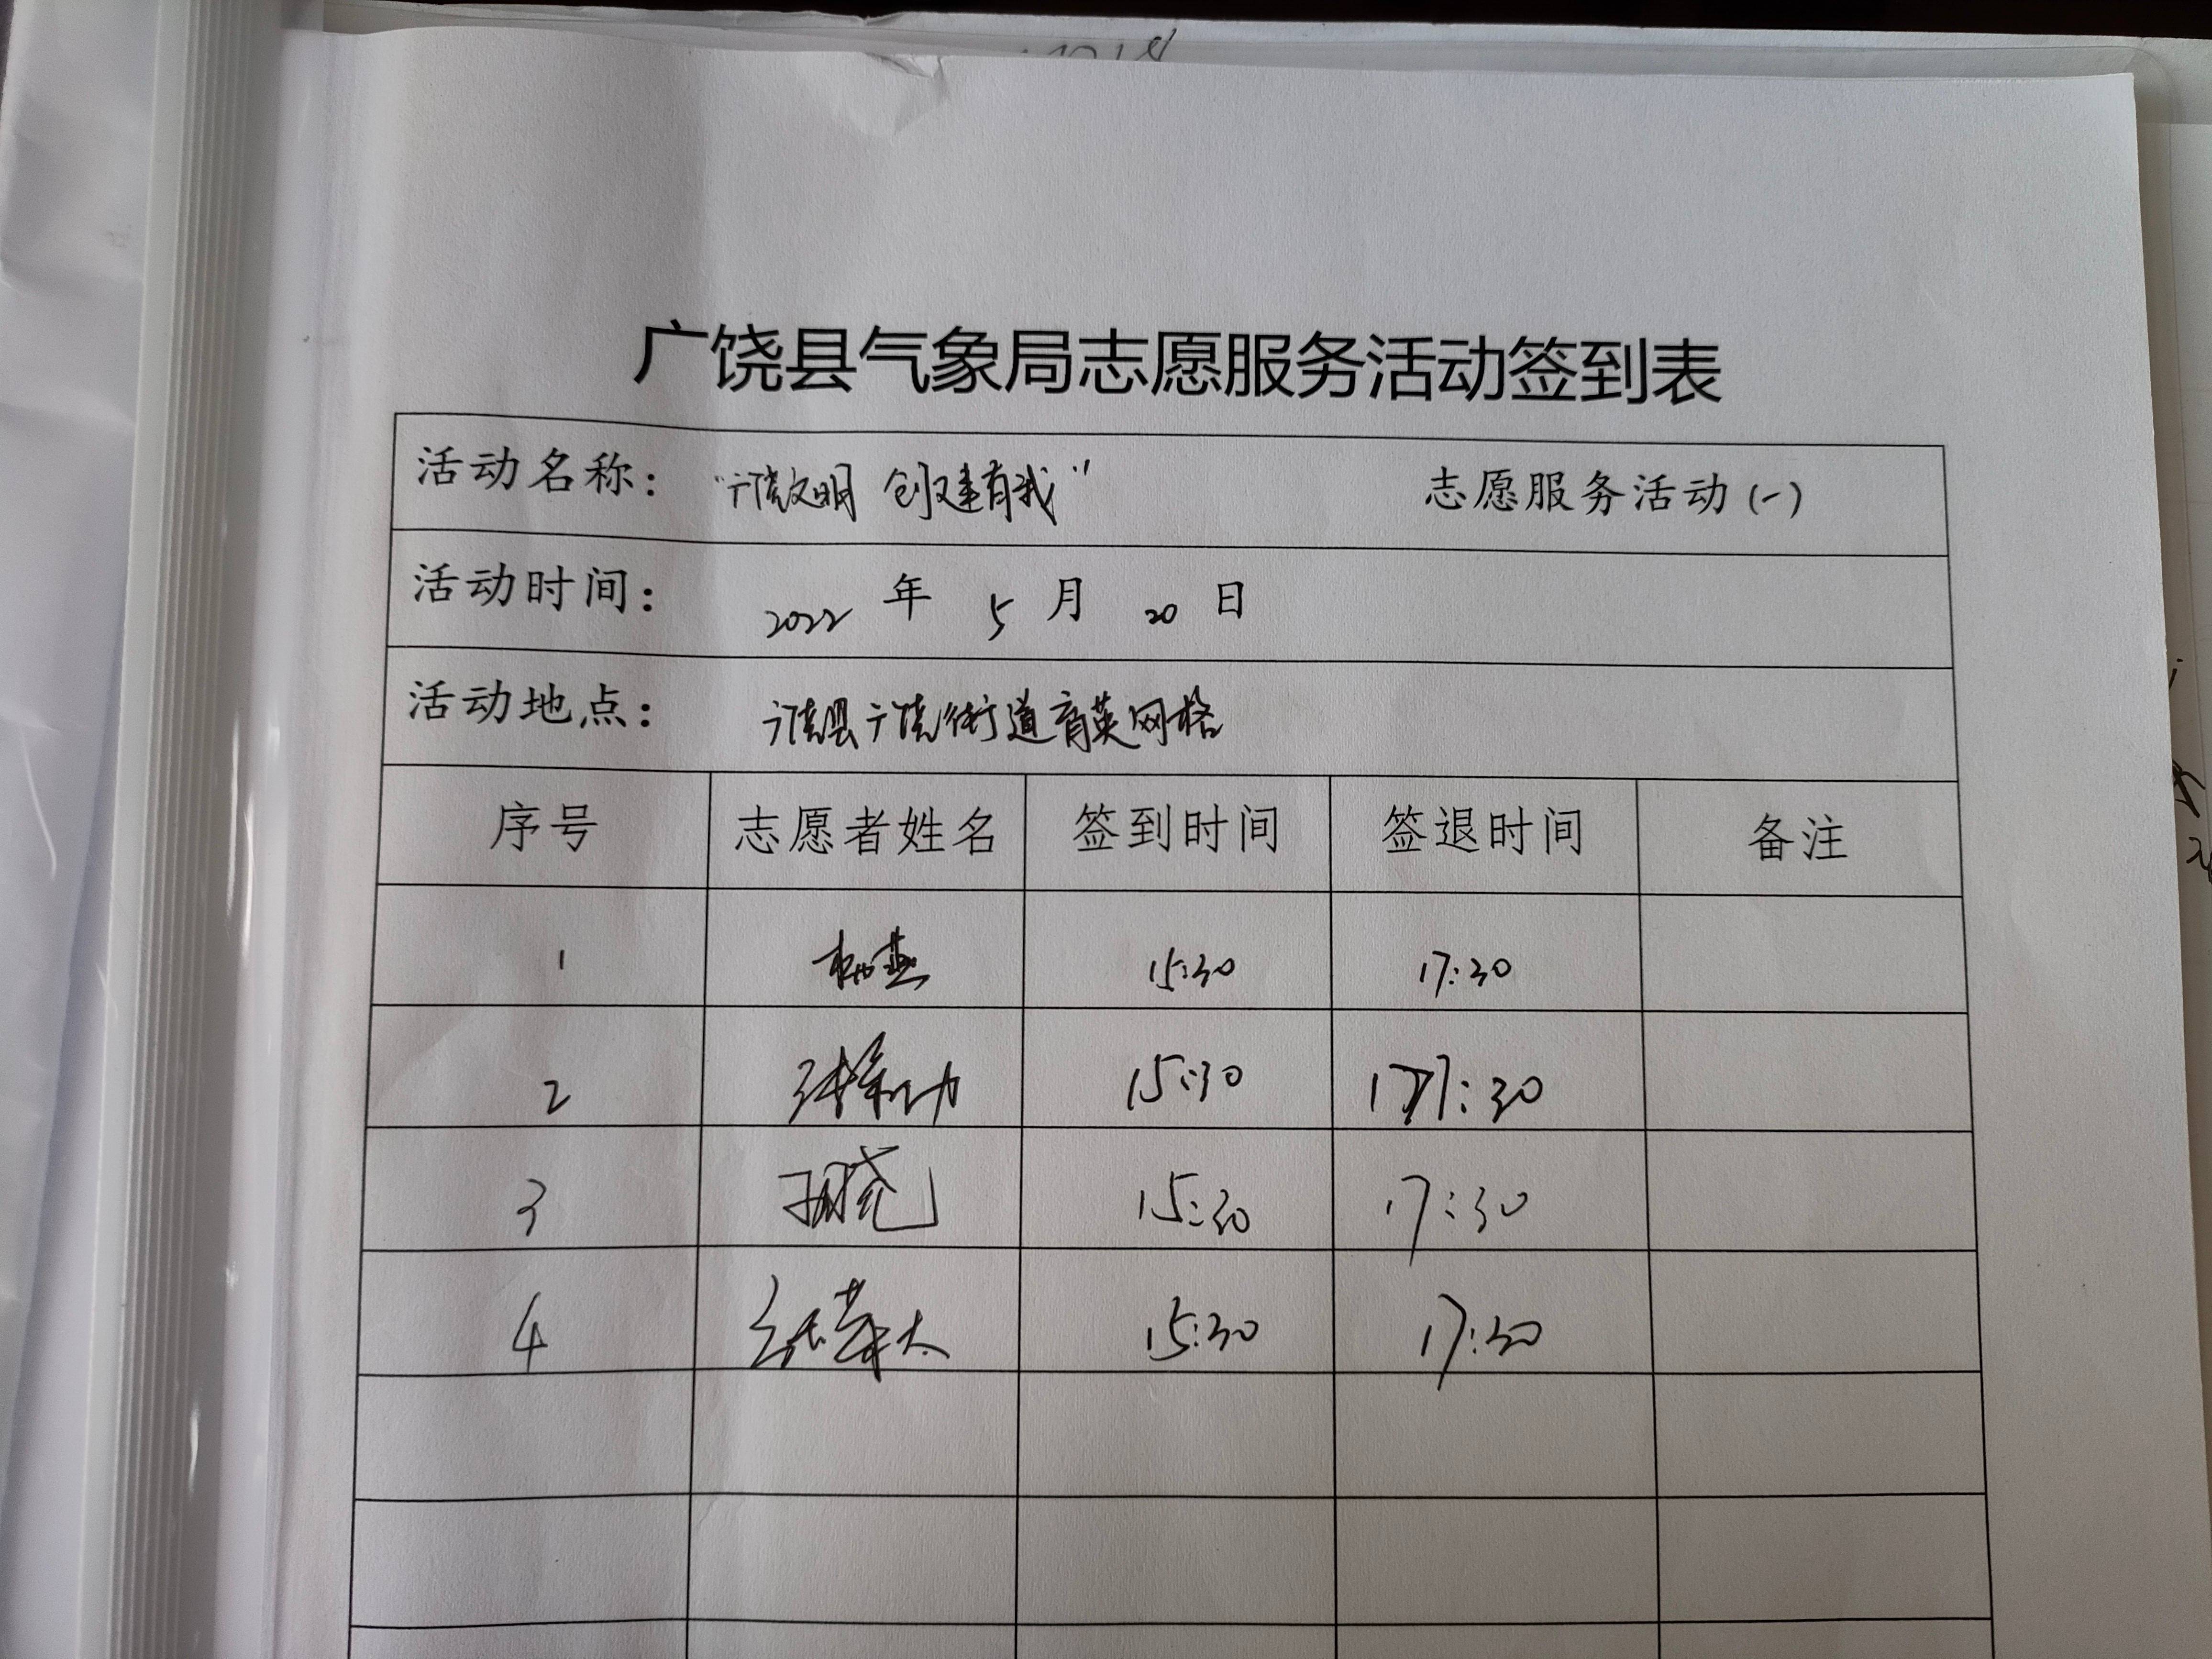 广饶县气象局志愿服务活动签到表
活动名称： “广饶文明 创建有我” 志愿服务活动(一)
活动时间： 2022 年 5 月 20 日
活动地点： 广饶县广饶街道育英网格
序号 志愿者姓名 签到时间 签退时间 备注
1 15:30 17:30
2 15:30 17:30
3 15:30 17:30
4 15:30 17:30